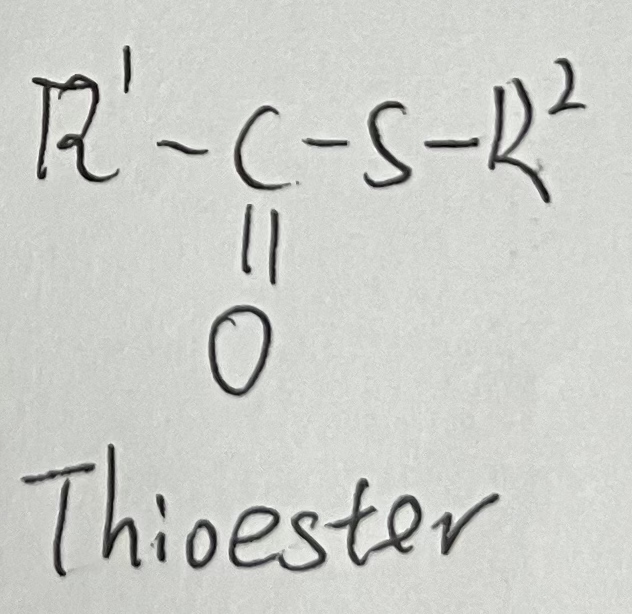 R¹-C-S-R²
||
O
Thioester